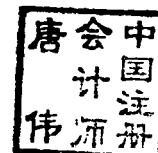 中国注册
会计师
唐伟